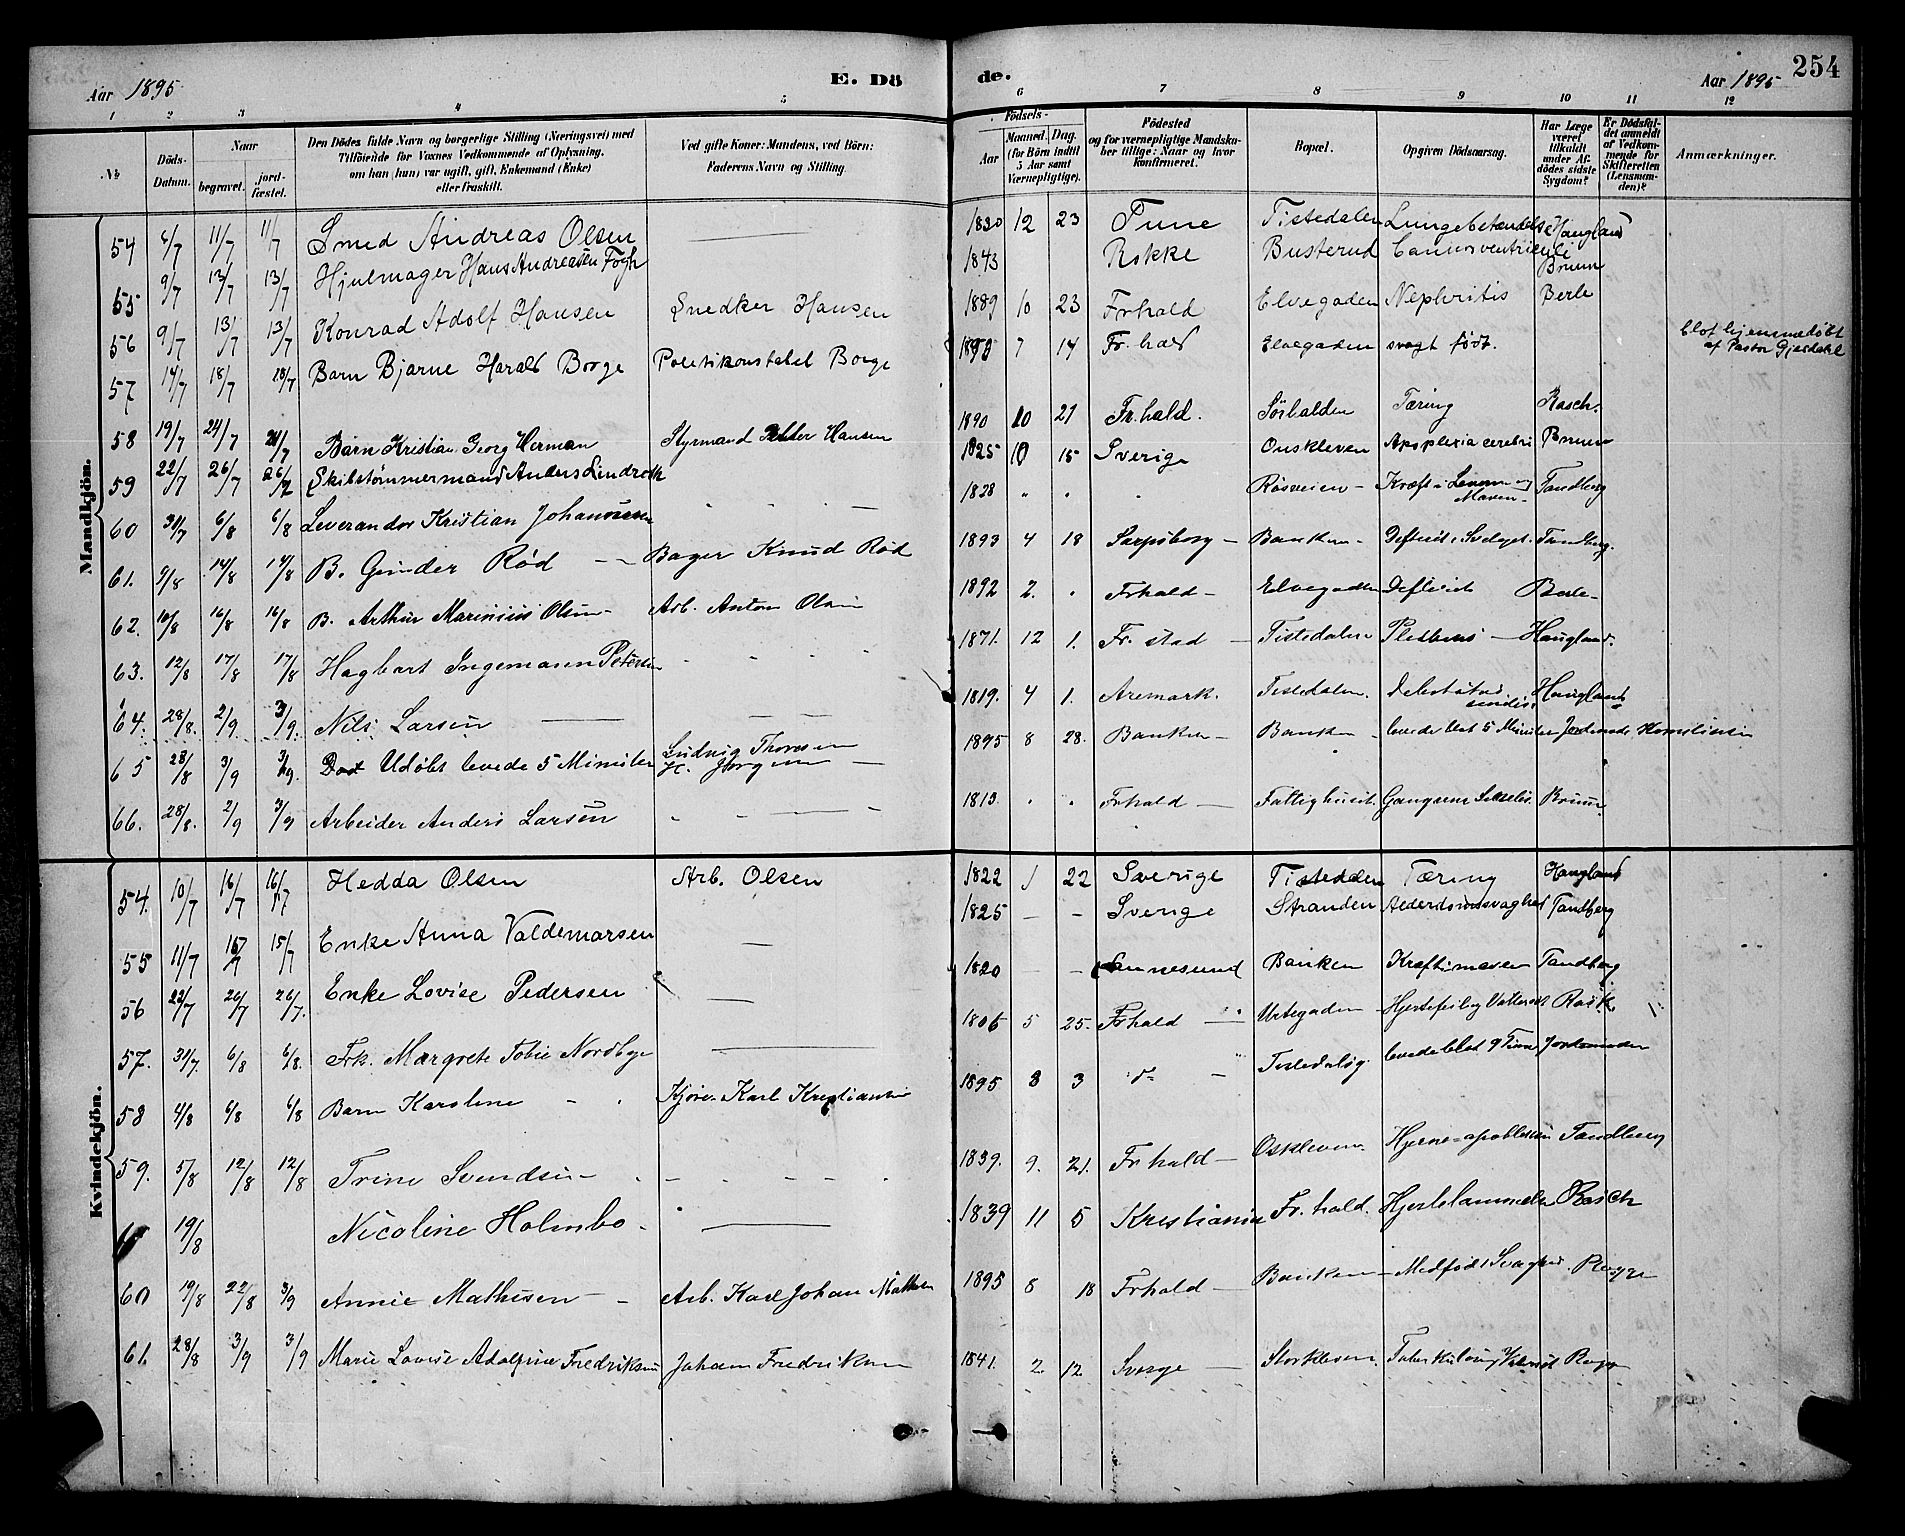 Aar 1895 E. Dö de. Aar 1895 254
1 2 3 4 5 6 7 8 9 10 11 12
№ Döds-Datum. Naar begravet. jord-fæstet. Den Dödes fulde Navn og borgerlige Stilling (Næringsvei) med Tilföiende for Voxnes Vedkommende af Oplysning, om han (hun) var ugift, gift, Enkemand (Enke) eller fraskilt. Ved gifte Koner: Mandens, ved Börn: Faderens Navn og Stilling. Födsels- Aar Maaned. Dag. (for Börn indtil 5 Aar samt Værnepligtige). Födested og for værnepligtige Mandskaber tillige: Naar og hvor konfirmeret. Bopæl. Opgiven Dödsaarsag. Har Læge været tilkaldt under Afdödes sidste Sygdom? Er Dödsfaldet anmeldt af Vedkommende for Skifteretten (Lensmanden)? Anmærkninger.
Mandkjön.
54 8/7 11/7 11/7 Smed Andreas Olsen — 1830 12 23 Tune Tistedalen Lungebetændelse Haugland
55 9/7 13/7 13/7 Hjulmager Hans Andreasen Fogh 1843 Rokke Busterud Cancer ventriculi Bruun
56 9/7 13/7 13/7 Konrad Adolf Hansen Snedker Hansen 1889 10 23 Frhald Elvegaden Nephritis Berle
57 14/7 18/7 18/7 Barn Bjarne Harald Borge Politikonstabel Borge 1895 7 14 Fr.hald Elvegaden svagt födt. blot hjemmedöbt af Pastor Gjeldahl
58 19/7 24/7 24/7 Barn Kristian Georg Herman Styrmand Petter Hansen 1890 10 21 Fr.hald. Sörhalden Tæring Rasch.
59 22/7 26/7 26/7 Skibstømmermand Anders Lindroth 1825 10 15 Sverige Ouskleven Apoplexia cerebri Bruun
60 31/7 6/8 6/8 Leverandør Kristian Johannesen 1828 " " " Røsveien – Kræft i Leveren og Maven – Tandberg
61. 9/8 14/8 14/8 B. Gunder Rød — Bager Knud Rød 1893 4 18 Sarpsborg – Banken – Defterit i Svelget. Tandberg.
62. 10/8 16/8 16/8 B. Arthur Marinius Olsen – Arb. Anton Olsen 1892 2. " Frhald – Elvegaden Defterit Berle –
63. 12/8 17/8 17/8 Hagbart Ingemann Petersen 1871. 12 1. Fr.stad — Tistedalen – Haugland.
64. 28/8. 2/9 3/9. Nils Larsen — 1819. 4 1. Aremark. Tistedalen. Haugland
65 28/8 3/9 3/9. Död Udöbt levede 5 Minuter Ludvig Thoresen 1895 8 28. Banken – Banken – levede blot 5 Minuter Jordmode
66. 28/8. 2/9 3/9 Arbeider Anders Larsen 1813. " " Frhald — Fattighuset. Bruun
Kvindekjön.
54. 10/7 16/7 16/7 Hedda Olsen Arb. Olsen 1822 1 22 Sverige Tistedalen Tæring Haugland
55 11/7 15/7 15/7 Enke Anna Valdemarsen — 1825 – – Sverige Stranden Alderdomssvaghed Tandberg
56 22/7 26/7 26/7. Enke Lovise Pedersen — 1820 – – Sannesund Banken Kræft i maven Tandberg
57. 31/7. 6/8 6/8. Frk. Margrete Tobie Nordbye — 1806 5 25. Frhald — Urtegaden Hjertefeil og Vattersot Rasch
58 4/8 6/8 6/8 Barn Karoline – Kjöre. Karl Kristiansen 1895 8 3 do – Tistedalen levede blot 9 Timer Jordmoder
59. 5/8 12/8 12/8 Trine Svendsen – 1839. 9. 21. Fr hald – Oskleven. Hjerne-apopleksi Tandberg
19/8 Nicoline Holmbo. — 1839 11 5 Kristiania Fr.hald. Hjertelammelse Rasch
60 19/8 22/8 3/9 Annie Mathisen – Arb. Karl Johan Mathisen 1895 8 18 Frhald — Banken – Medfödt Svaghed. Rygge
61. 28/8 3/9 3/9 Marie Lovise Adolfine Fredriksen Johan Fredriksen 1841. 2 12 Sverge — Storkleven.